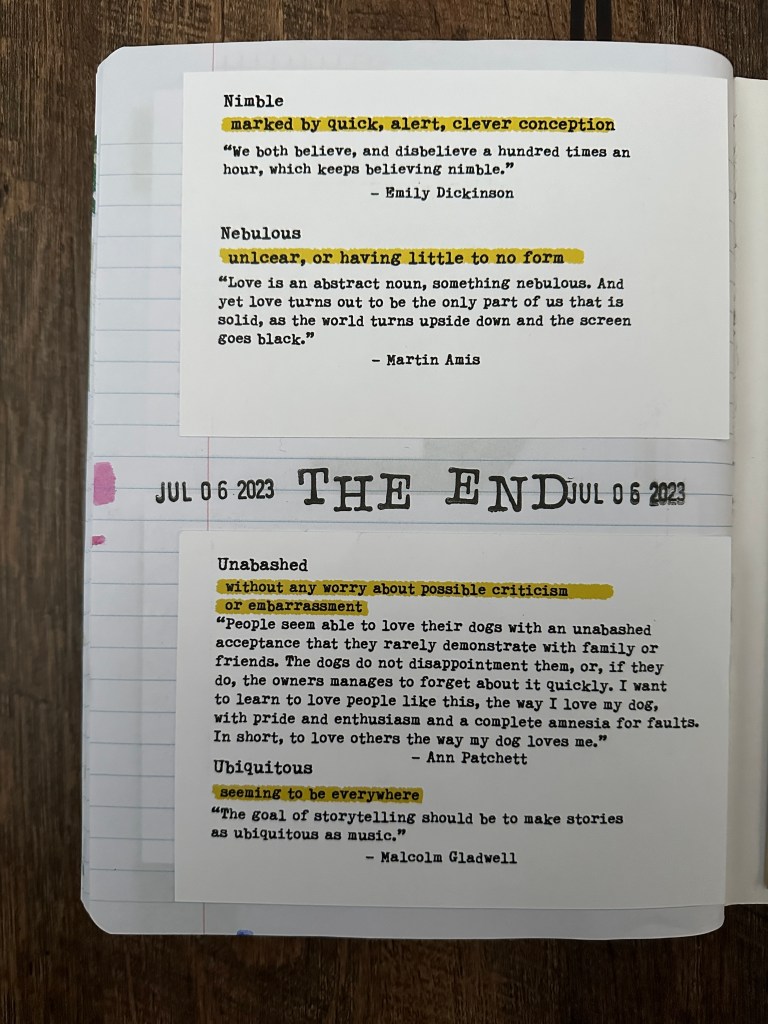 Nimble
marked by quick, alert, clever conception
“We both believe, and disbelieve a hundred times an
hour, which keeps believing nimble.”
– Emily Dickinson
Nebulous
unlcear, or having little to no form
“Love is an abstract noun, something nebulous. And
yet love turns out to be the only part of us that is
solid, as the world turns upside down and the screen
goes black.”
– Martin Amis
JUL 06 2023 THE END JUL 06 2023
Unabashed
without any worry about possible criticism
or embarrassment
“People seem able to love their dogs with an unabashed
acceptance that they rarely demonstrate with family or
friends. The dogs do not disappointment them, or, if they
do, the owners manages to forget about it quickly. I want
to learn to love people like this, the way I love my dog,
with pride and enthusiasm and a complete amnesia for faults.
In short, to love others the way my dog loves me.”
– Ann Patchett
Ubiquitous
seeming to be everywhere
“The goal of storytelling should be to make stories
as ubiquitous as music.”
– Malcolm Gladwell